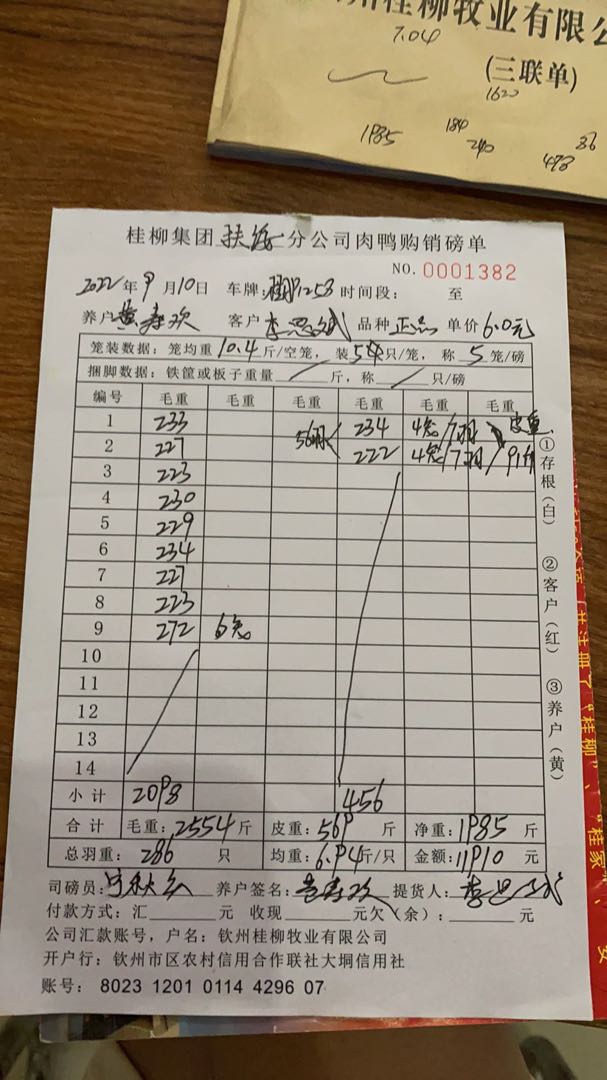 州桂柳牧业有限公
7.04
(三联单)
1620
1985 184 240 478 86
桂柳集团 扶绥 分公司肉鸭购销磅单
NO. 0001382
2022 年 9 月 10 日 车牌: 1253 时间段: 至
养户 黄寿欢 客户 李思斌 品种 正品 单价 6.0元
笼装数据: 笼均重 10.4 斤/空笼, 装 5 只/笼, 称 5 笼/磅
捆脚数据: 铁筐或板子重量 / 斤, 称 / 只/磅
编号 毛重 毛重 毛重 毛重 毛重 毛重
1 233 56羽 234 4笼/7羽 皮重
2 227 222 4笼/7羽/91斤
3 223
4 230
5 229
6 234
7 227
8 223
9 272 6笼
10
11
12
13
14
小计 2098 456
合计 毛重: 2554 斤 皮重: 569 斤 净重: 1985 斤
总羽重: 286 只 均重: 6.94 斤/只 金额: 11910 元
司磅员: 养户签名: 黄寿欢 提货人: 李思斌
付款方式: 汇 元 收现 元欠(余): 元
公司汇款账号, 户名: 钦州桂柳牧业有限公司
开户行: 钦州市区农村信用合作联社大垌信用社
账号: 8023 1201 0114 4296 07
①存根(白) ②客户(红) ③养户(黄)